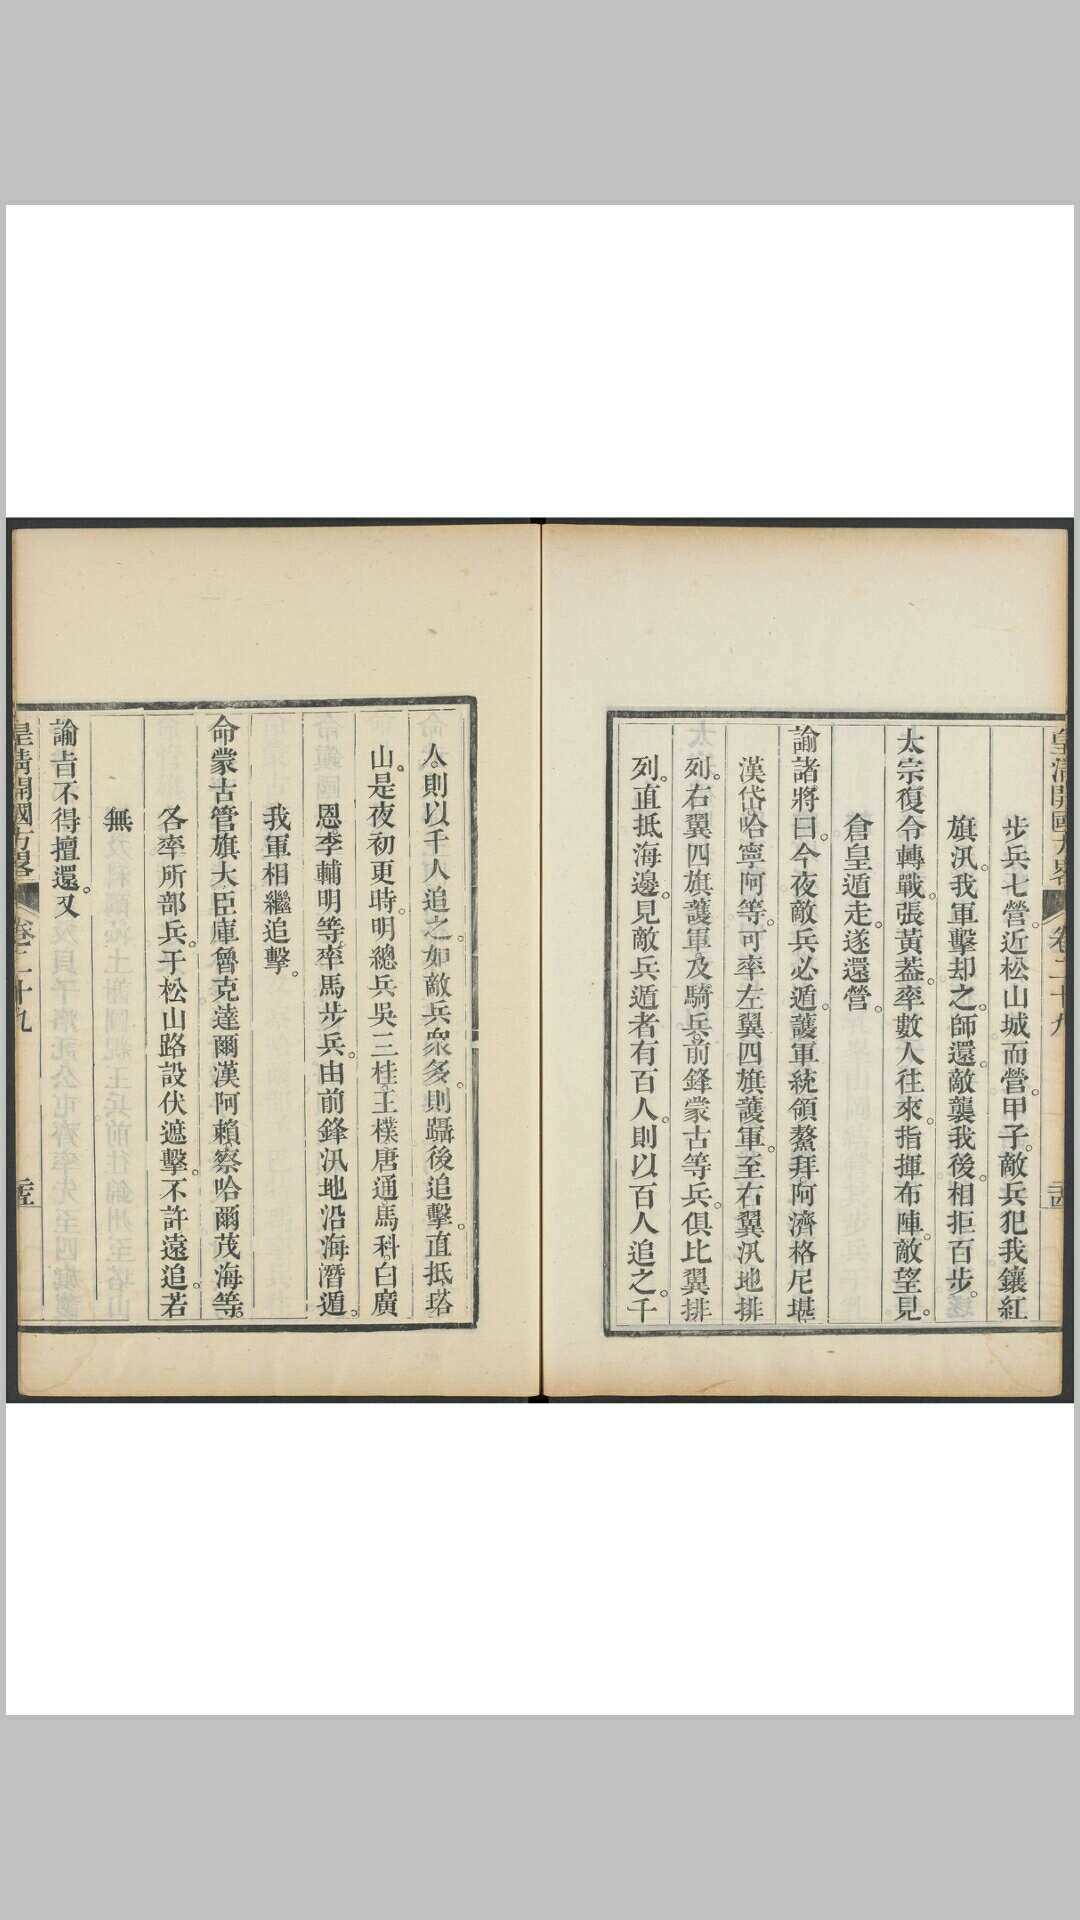 皇清開國方畧 卷二十九 二十四
步兵七營。近松山城而營。甲子。敵兵犯我鑲紅
旗汛。我軍擊却之。師還。敵襲我後。相拒百步。
太宗復令轉戰。張黃蓋。率數人往來。指揮布陣。敵望見。
倉皇遁走。遂還營。
諭諸將曰。今夜敵兵必遁。護軍統領鰲拜阿濟格尼堪
漢岱哈寧阿等。可率左翼四旗護軍。至右翼汛地排
列。右翼四旗護軍及騎兵前鋒蒙古等兵。俱比翼排
列。直抵海邊。見敵兵遁者有百人。則以百人追之。千
人。則以千人追之。如敵兵衆多。則躡後追擊。直抵塔
山。是夜初更時。明總兵吳三桂王樸唐通馬科白廣
恩李輔明等率馬步兵。由前鋒汛地沿海潛遁。
我軍相繼追擊。
命蒙古管旗大臣庫魯克達爾漢阿賴察哈爾茂海等。
各率所部兵。于松山路設伏遮擊。不許遠追。若
無
諭旨不得擅還。又
皇清開國方畧 卷二十九 二十五